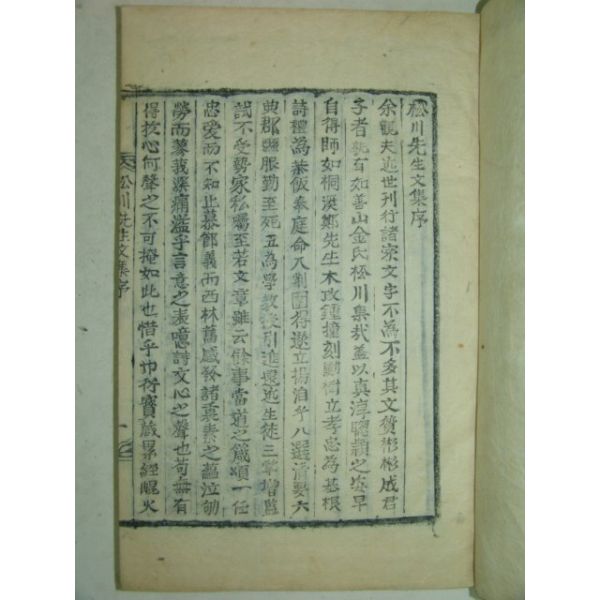 松川先生文集序
余觀夫近世刊行諸家文字不爲不多其文質彬彬成君
子者孰有如善山金氏松川集哉蓋以眞淳聰穎之姿早
自得師如桐溪鄭先生木攻鍾撞刻勵樹立孝忠爲基根
詩禮爲茶飯奉庭命八制圍得遂立揚泊乎八選淸要六
典郡縣服勤至死五爲學敎後引進遠近生徒三掌增監
試不受勢家私囑至若文章雖云餘事當道之箴頌一任
忠愛而不知止慕節義而西林舊感發諸裏素之蘊泣劬
勞而蓼莪深痛溢乎言意之表噫詩文心之聲也苟無有
得於心何聲之不可掩如此也惜乎巾衍寶藏累經醌火
松川先生文集序
一